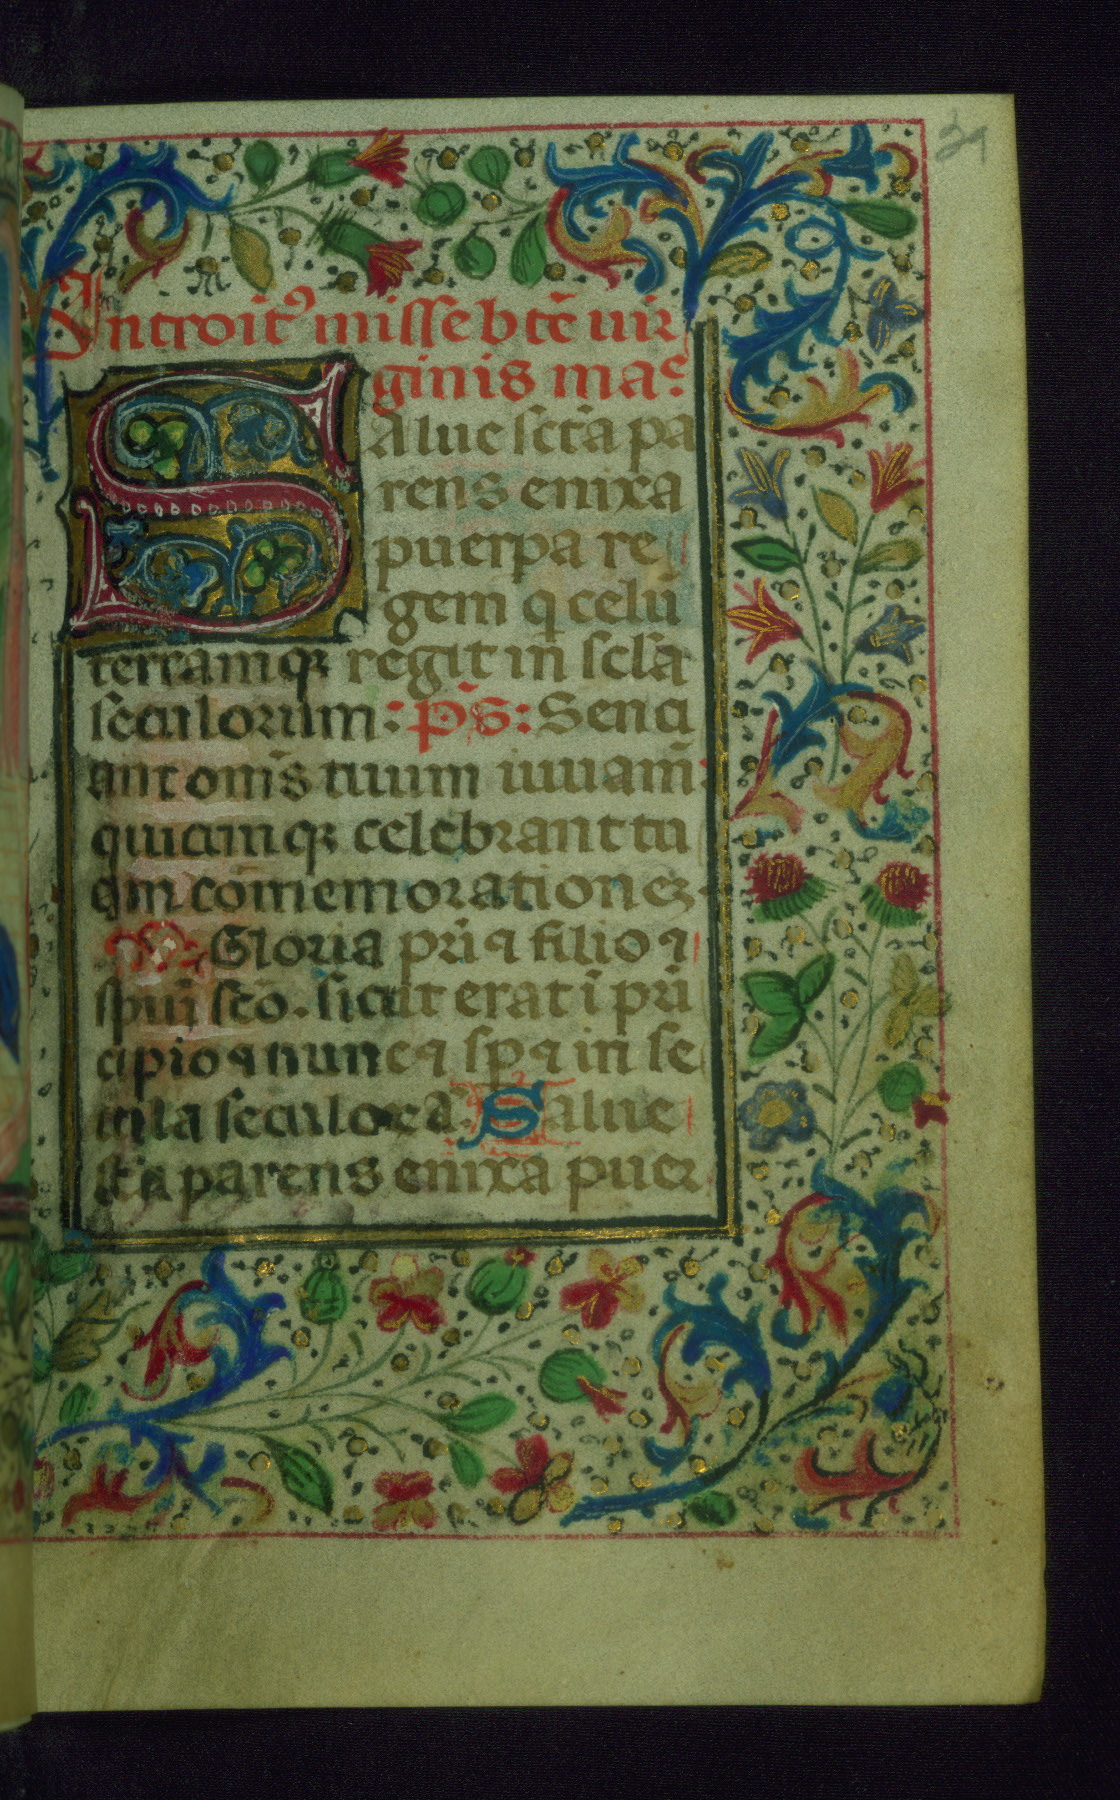 39
Introit⁹ misse btē uir
ginis ma
Salue sctā pa
rens enixa
puerpa re
gem q celū
terramqꝫ regit in sclā
seculorum: ps̄: Senci
ant om̄s tuum iuuam̄
quicumqꝫ celebrant tu
am cōmemorationeꝫ
Gloria pri ⁊ filio ⁊
spui sc̄o. sicut erat ī prī
cipio ⁊ nunc ⁊ sp̄ ⁊ in se
cula seculoꝝ a. Salue
sc̄a parens enixa puer